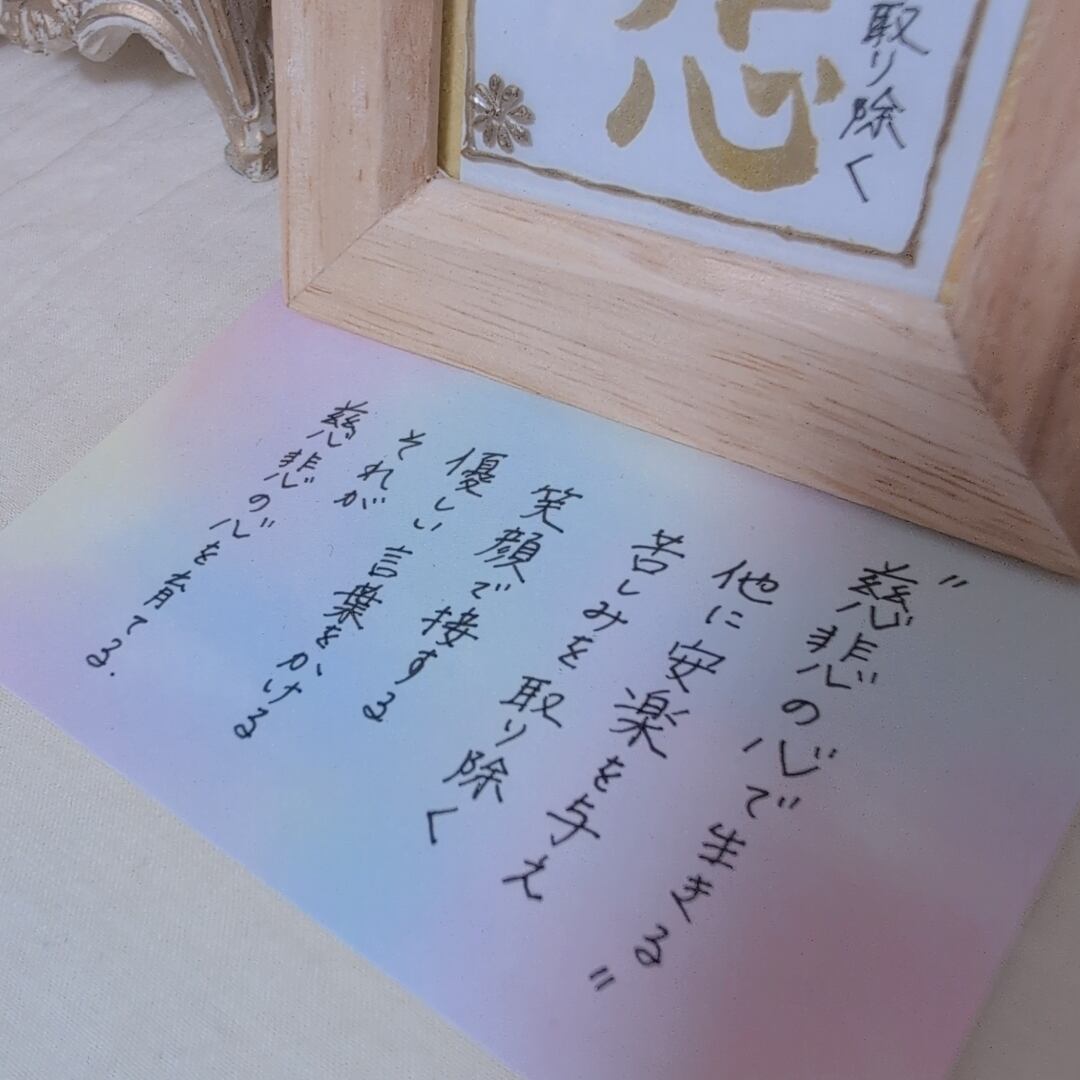 取り除く
"慈悲の心で生きる"
他に安楽を与え
苦しみを取り除く
笑顔で接する
優しい言葉をかける
それが
慈悲の心を育てる.